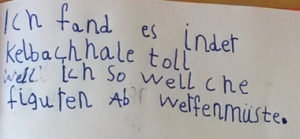 Ich fand es inder
Kelbachhale toll
weil ich so welche
figuren Ab werfenmüste.